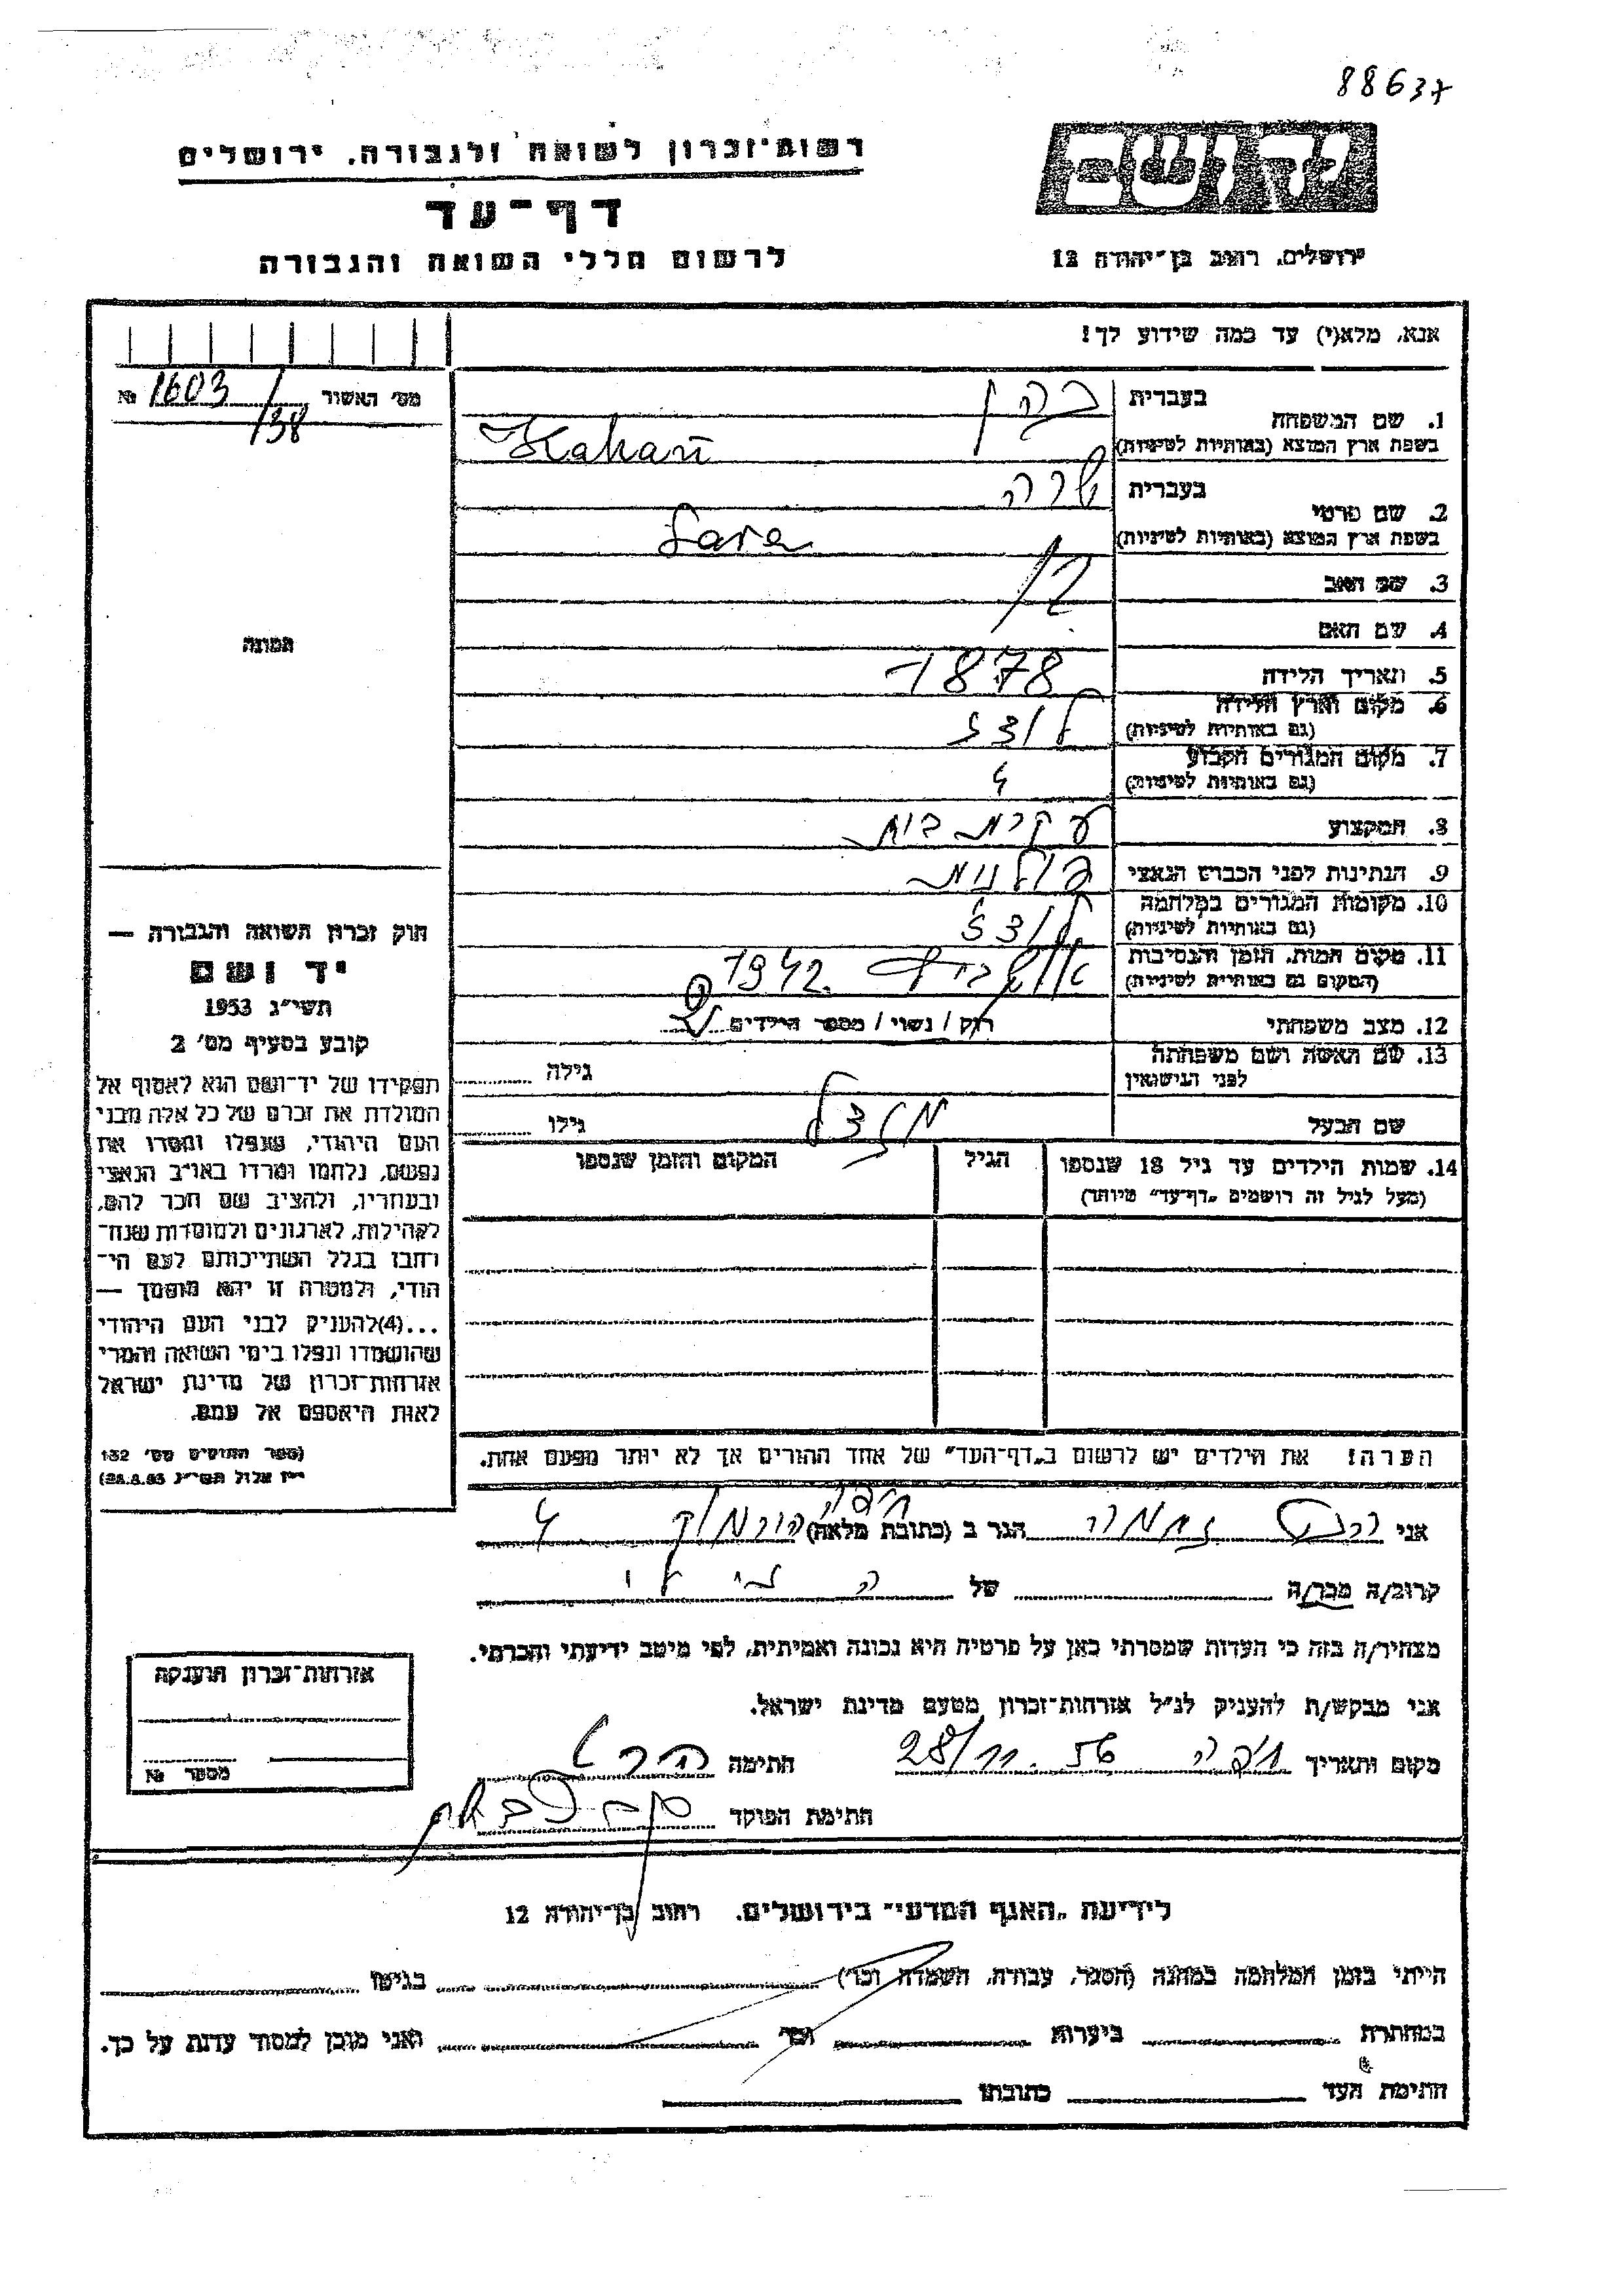 88637
רשות־זכרון לשואה ולגבורה, ירושלים
יד ושם
דף־עד
לרשום חללי השואה והגבורה
ירושלים, רחוב בן־יהודה 12
אנא, מלא(י) עד כמה שידוע לך!
מס׳ האשור 1603/138 №
1. שם המשפחה
בעברית כהן
בשפת ארץ המוצא (באותיות לטיניות) Kahan
2. שם פרטי
בעברית שרה
בשפת ארץ המוצא (באותיות לטיניות) Sara
3. שם האב
4. שם האם
5. תאריך הלידה 1878
6. מקום וארץ הלידה לודז
(גם באותיות לטיניות)
7. מקום המגורים הקבוע
(גם באותיות לטיניות)
8. המקצוע עקרת בית
9. הנתינות לפני הכבוש הנאצי פולנית
10. מקומות המגורים במלחמה לודז
(גם באותיות לטיניות)
11. מקום המות, הזמן והנסיבות אושביץ 1942
(המקום גם באותיות לטיניות)
12. מצב משפחתי רוק / נשוי / מספר הילדים
13. שם האשה ושם משפחתה
לפני הנישואין
גילה
שם הבעל
גילו
תמונה
14. שמות הילדים עד גיל 18 שנספו
(מעל לגיל זה רושמים „דף־עד״ מיוחד)
הגיל
המקום והזמן שנספו
חוק זכרון השואה והגבורה —
יד ושם
תשי״ג 1953
קובע בסעיף מס׳ 2
תפקידו של יד־ושם הוא לאסוף אל
המולדת את זכרם של כל אלה מבני
העם היהודי, שנפלו ומסרו את
נפשם, נלחמו ומרדו באויב הנאצי
ובעוזריו, ולהציב שם וזכר להם,
לקהילות, לארגונים ולמוסדות שנח־
רבו בגלל השתייכותם לעם הי־
הודי, ולמטרה זו יהא מוסמך —
...(4)להעניק לבני העם היהודי
שהושמדו ונפלו בימי השואה והמרי
אזרחות־זכרון של מדינת ישראל
לאות היאספם אל עמם.
(ספר החוקים מס׳ 132
י״ז אלול תשי״ג 28.8.53)
הערה! את הילדים יש לרשום ב„דף־העד״ של אחד ההורים אך לא יותר מפעם אחת.
אני הגר ב (כתובת מלאה) חיפה
קרוב/ה מכר/ה של
מצהיר/ה בזה כי העדות שמסרתי כאן על פרטיה היא נכונה ואמיתית, לפי מיטב ידיעתי והכרתי.
אני מבקש/ת להעניק לנ״ל אזרחות־זכרון מטעם מדינת ישראל.
מקום ותאריך חיפה 28/11.56 חתימה
חתימת הפוקד
אזרחות־זכרון הוענקה
מספר №
לידיעת „האגף המדעי״ בירושלים, רחוב בן־יהודה 12
הייתי בזמן המלחמה במחנה (הסגר, עבודה, השמדה וכו׳) בגיטו
במחתרת ביערות וכו׳ ואני מוכן למסור עדות על כך.
חתימת העד כתובתו